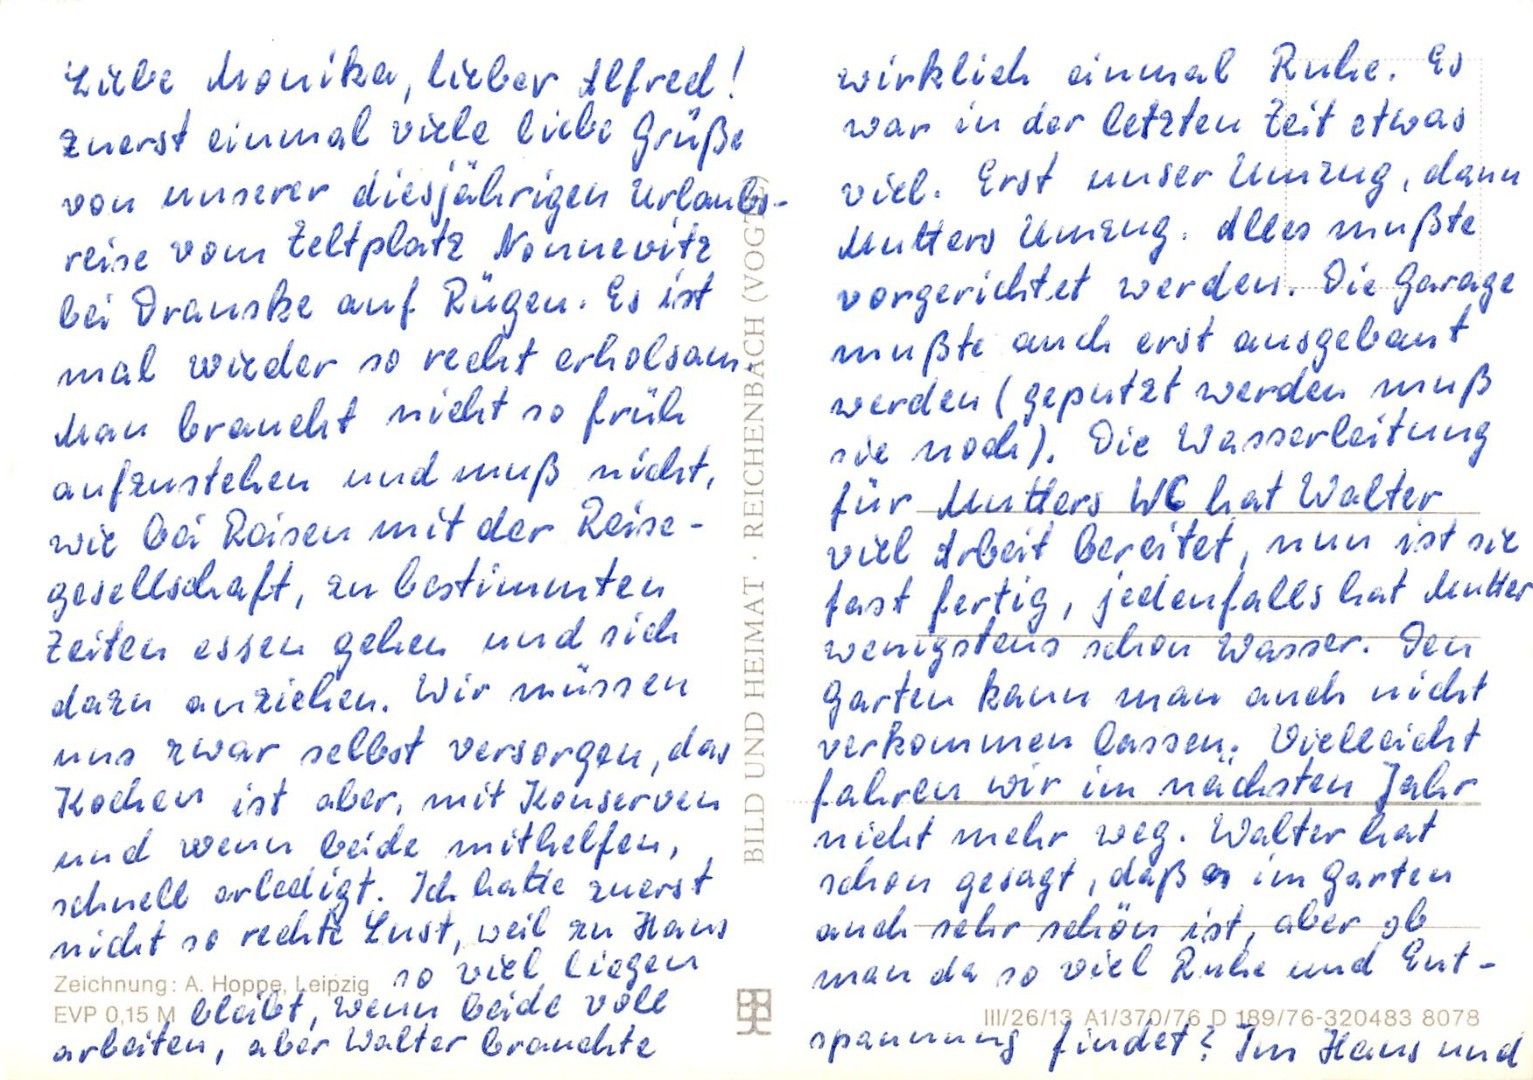 Liebe Monika, lieber Alfred!
Zuerst einmal viele liebe Grüße
von unserer diesjährigen Urlaubs-
reise vom Zeltplatz Nonnevitz
bei Dranske auf Rügen. Es ist
mal wieder so recht erholsam.
Man braucht nicht so früh
aufzustehen und muß nicht,
wie bei Reisen mit der Reise-
gesellschaft, zu bestimmten
Zeiten essen gehen und sich
dazu anziehen. Wir müssen
uns zwar selbst versorgen, das
Kochen ist aber, mit Konserven
und wenn beide mithelfen,
schnell erledigt. Ich hatte zuerst
nicht so rechte Lust, weil zu Haus
so viel liegen
bleibt, wenn beide voll
arbeiten, aber Walter brauchte
Zeichnung: A. Hoppe, Leipzig
EVP 0,15 M
BILD UND HEIMAT · REICHENBACH (VOGTL)
wirklich einmal Ruhe. Es
war in der letzten Zeit etwas
viel. Erst unser Umzug, dann
Mutters Umzug. Alles mußte
vorgerichtet werden. Die Garage
mußte auch erst ausgebaut
werden (geputzt werden muß
sie noch). Die Wasserleitung
für Mutters WC hat Walter
viel Arbeit bereitet, nun ist sie
fast fertig, jedenfalls hat Mutter
wenigstens schon Wasser. Den
Garten kann man auch nicht
verkommen lassen. Vielleicht
fahren wir im nächsten Jahr
nicht mehr weg. Walter hat
schon gesagt, daß es im Garten
auch sehr schön ist, aber ob
man da so viel Ruhe und Ent-
spannung findet? Im Haus und
III/26/13 A1/370/76 D 189/76-320483 8078